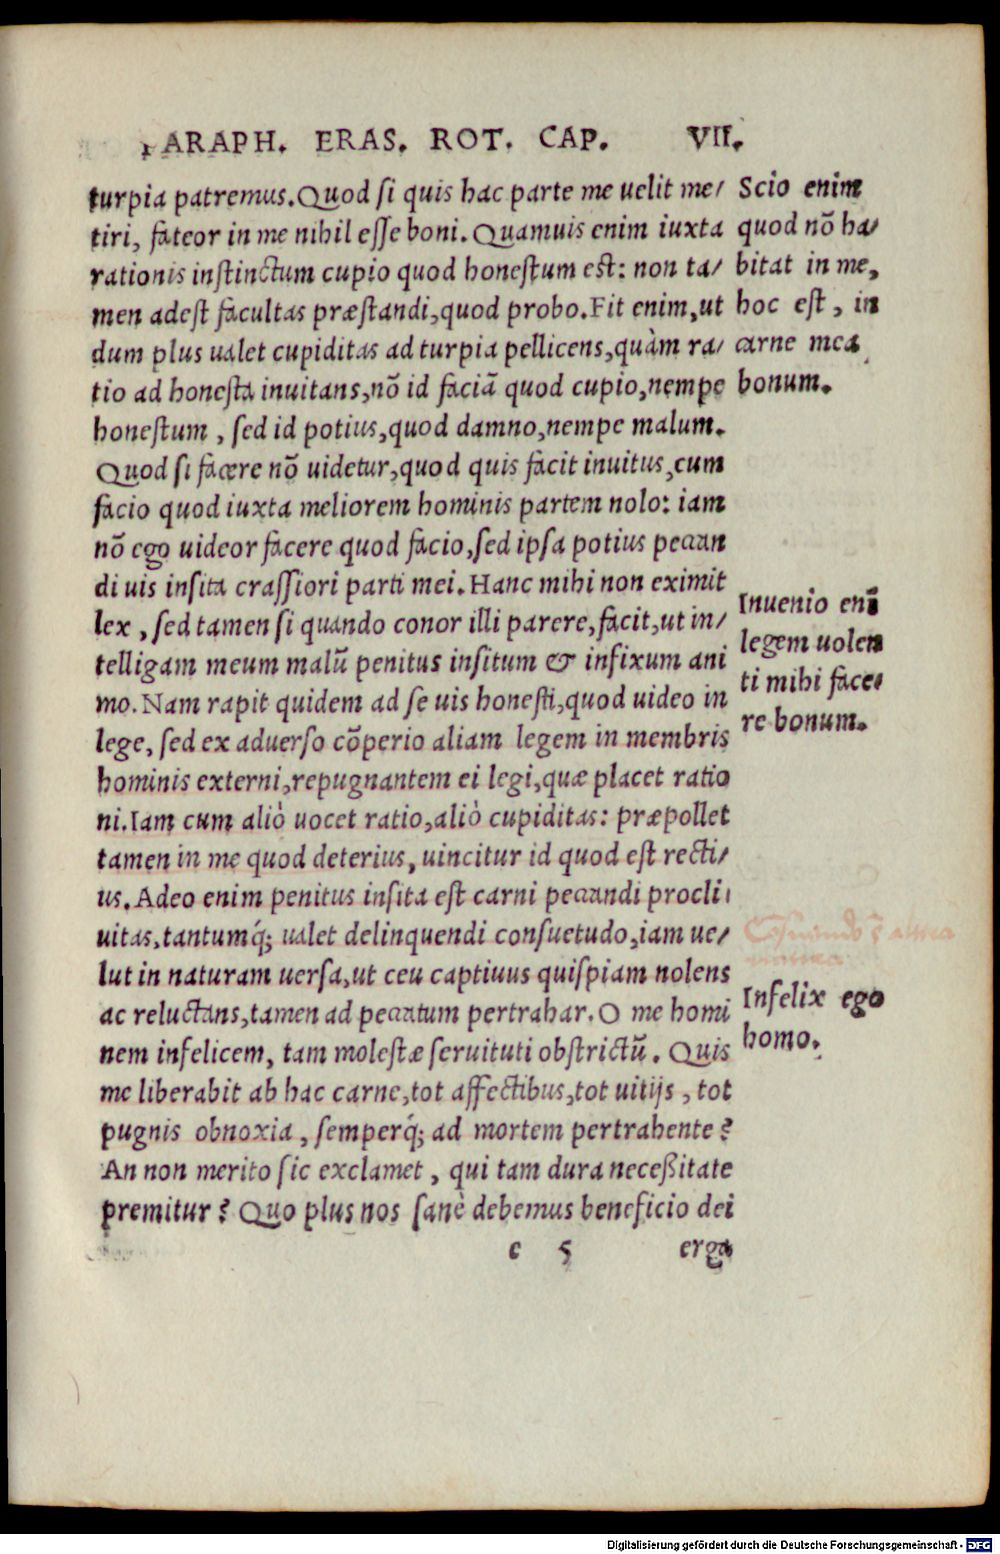 PARAPH. ERAS. ROT. CAP. VII.
turpia patremus. Quod si quis hac parte me uelit me/
tiri, fateor in me nihil esse boni. Quamuis enim iuxta
rationis instinctum cupio quod honestum est: non ta/
men adest facultas præstandi, quod probo. Fit enim, ut
dum plus ualet cupiditas ad turpia pellicens, quàm ra/
tio ad honesta inuitans, nõ id faciã quod cupio, nempe
honestum, sed id potius, quod damno, nempe malum.
Quod si facere nõ uidetur, quod quis facit inuitus, cum
facio quod iuxta meliorem hominis partem nolo: iam
nõ ego uideor facere quod facio, sed ipsa potius peccan
di uis insita crassiori parti mei. Hanc mihi non eximit
lex, sed tamen si quando conor illi parere, facit, ut in/
telligam meum malũ penitus insitum & infixum ani
mo. Nam rapit quidem ad se uis honesti, quod uideo in
lege, sed ex aduerso cõperio aliam legem in membris
hominis externi, repugnantem ei legi, quæ placet ratio
ni. Iam cum aliò uocet ratio, aliò cupiditas: præpollet
tamen in me quod deterius, uincitur id quod est recti/
us. Adeo enim penitus insita est carni peccandi procli/
uitas, tantumq́; ualet delinquendi consuetudo, iam ue/
lut in naturam uersa, ut ceu captiuus quispiam nolens
ac reluctans, tamen ad peccatum pertrahar. O me homi
nem infelicem, tam molestæ seruituti obstrictũ. Quis
me liberabit ab hac carne, tot affectibus, tot uitijs, tot
pugnis obnoxia, semperq́; ad mortem pertrahente?
An non merito sic exclamet, qui tam dura neceßitate
premitur? Quo plus nos sanè debemus beneficio dei
c 5 erga
Scio enim
quod nõ ha/
bitat in me,
hoc est, in
carne mea
bonum.
Inuenio enĩ
legem uolen
ti mihi face/
re bonum.
Infelix ego
homo.
Digitalisierung gefördert durch die Deutsche Forschungsgemeinschaft - DFG